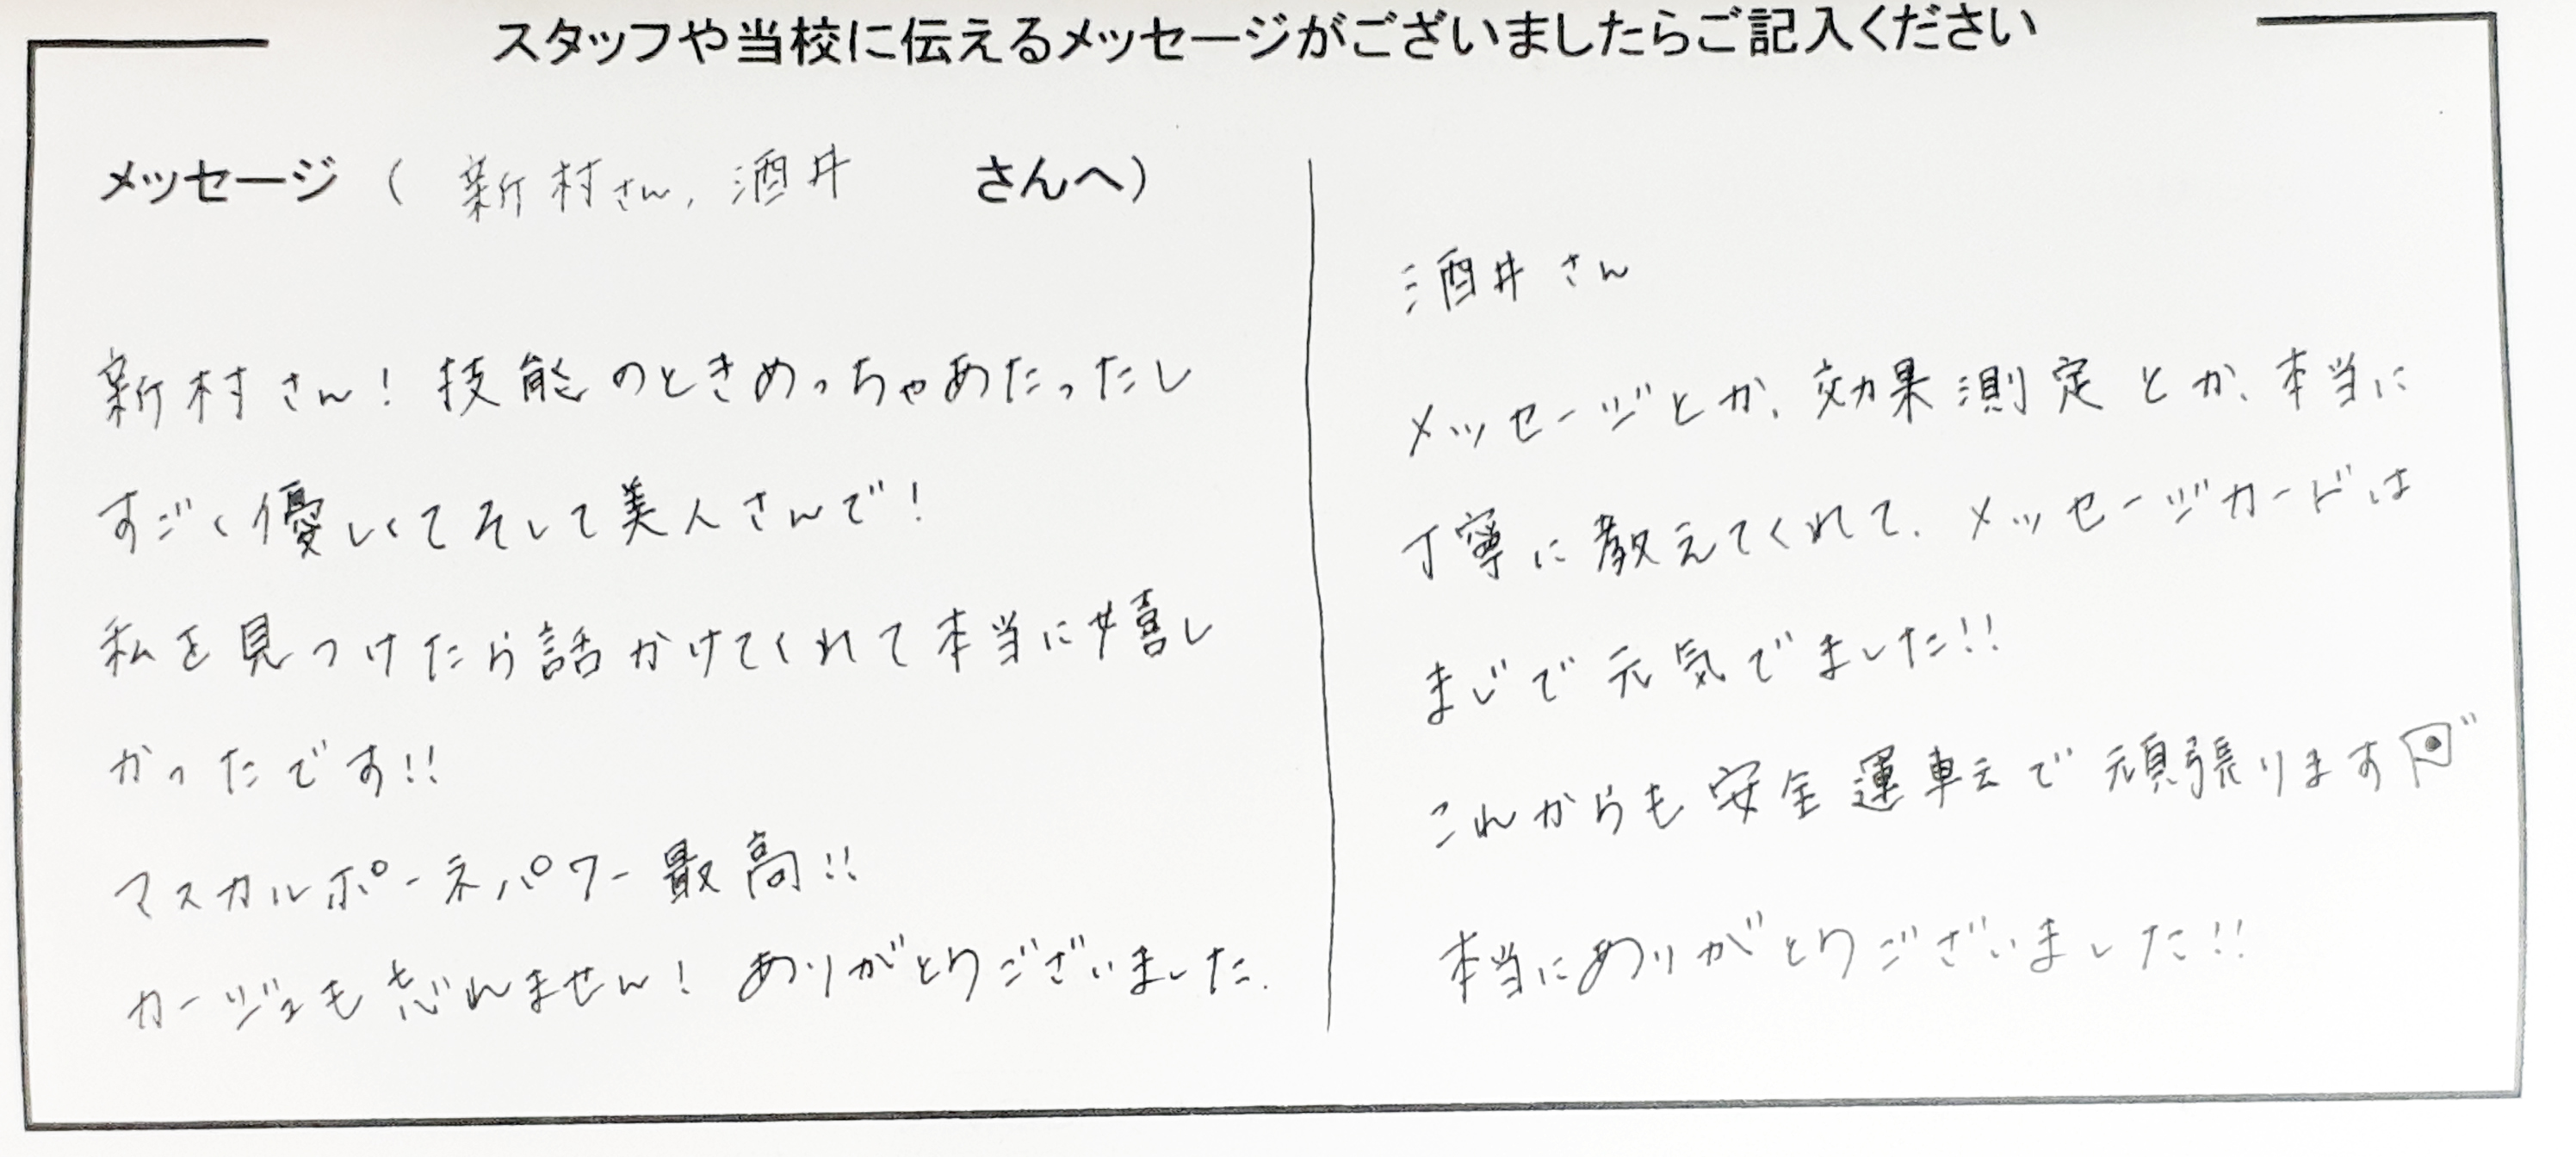 スタッフや当校に伝えるメッセージがございましたらご記入ください
メッセージ（ 新村さん, 酒井 さんへ）
新村さん! 技能のときめっちゃあたったし
すごく優しくてそして美人さんで!
私を見つけたら話かけてくれて本当に嬉し
かったです!!
マスカルポーネパワー最高!!
カージュも忘れません! ありがとうございました.
酒井さん
メッセージとか、効果測定とか、本当に
丁寧に教えてくれて、メッセージカードは
まじで元気でました!!
これからも安全運転で頑張ります
本当にありがとうございました!!